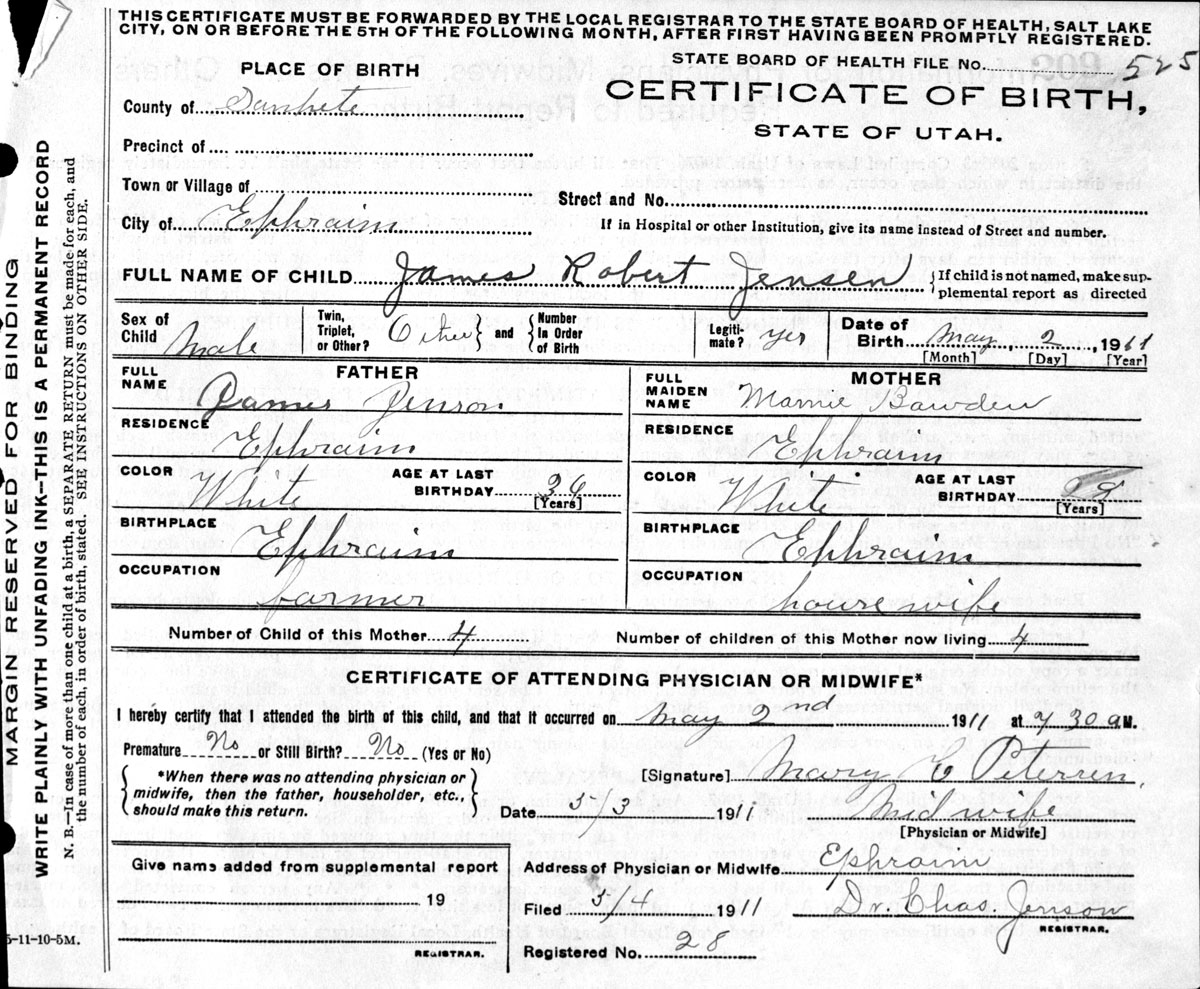 THIS CERTIFICATE MUST BE FORWARDED BY THE LOCAL REGISTRAR TO THE STATE BOARD OF HEALTH, SALT LAKE
CITY, ON OR BEFORE THE 5TH OF THE FOLLOWING MONTH, AFTER FIRST HAVING BEEN PROMPTLY REGISTERED.
STATE BOARD OF HEALTH FILE NO. 525
PLACE OF BIRTH
CERTIFICATE OF BIRTH,
STATE OF UTAH.
County of Sanpete
Precinct of
Town or Village of
Street and No.
City of Ephraim
If in Hospital or other Institution, give its name instead of Street and number.
FULL NAME OF CHILD James Robert Jensen {If child is not named, make sup-
plemental report as directed
Sex of Child Male Twin, Triplet, or Other? Other and {Number In Order of Birth Legiti-mate? yes Date of Birth May 2, 1911
[Month] [Day] [Year]
FATHER MOTHER
FULL NAME James Jenson FULL MAIDEN NAME Mamie Bawden
RESIDENCE Ephraim RESIDENCE Ephraim
COLOR White AGE AT LAST BIRTHDAY 36 [Years] COLOR White AGE AT LAST BIRTHDAY [Years]
BIRTHPLACE Ephraim BIRTHPLACE Ephraim
OCCUPATION farmer OCCUPATION house wife
Number of Child of this Mother 4 Number of children of this Mother now living 4
CERTIFICATE OF ATTENDING PHYSICIAN OR MIDWIFE*
I hereby certify that I attended the birth of this child, and that it occurred on May 2nd 1911 at 7 30 A M.
Premature No or Still Birth? No (Yes or No)
{*When there was no attending physician or
midwife, then the father, householder, etc.,
should make this return.}
[Signature] Mary C Petersen.
Date 5/3 1911 Mid wife
[Physician or Midwife]
Give names added from supplemental report
19
REGISTRAR.
Address of Physician or Midwife Ephraim
Filed 5/4 1911 Dr. Chas. Jenson
REGISTRAR.
Registered No. 28
5-11-10-5M.
MARGIN RESERVED FOR BINDING
WRITE PLAINLY WITH UNFADING INK—THIS IS A PERMANENT RECORD
N. B. In case of more than one child at a birth, a SEPARATE RETURN must be made for each, and
the number of each, in order of birth, stated. SEE INSTRUCTIONS ON OTHER SIDE.